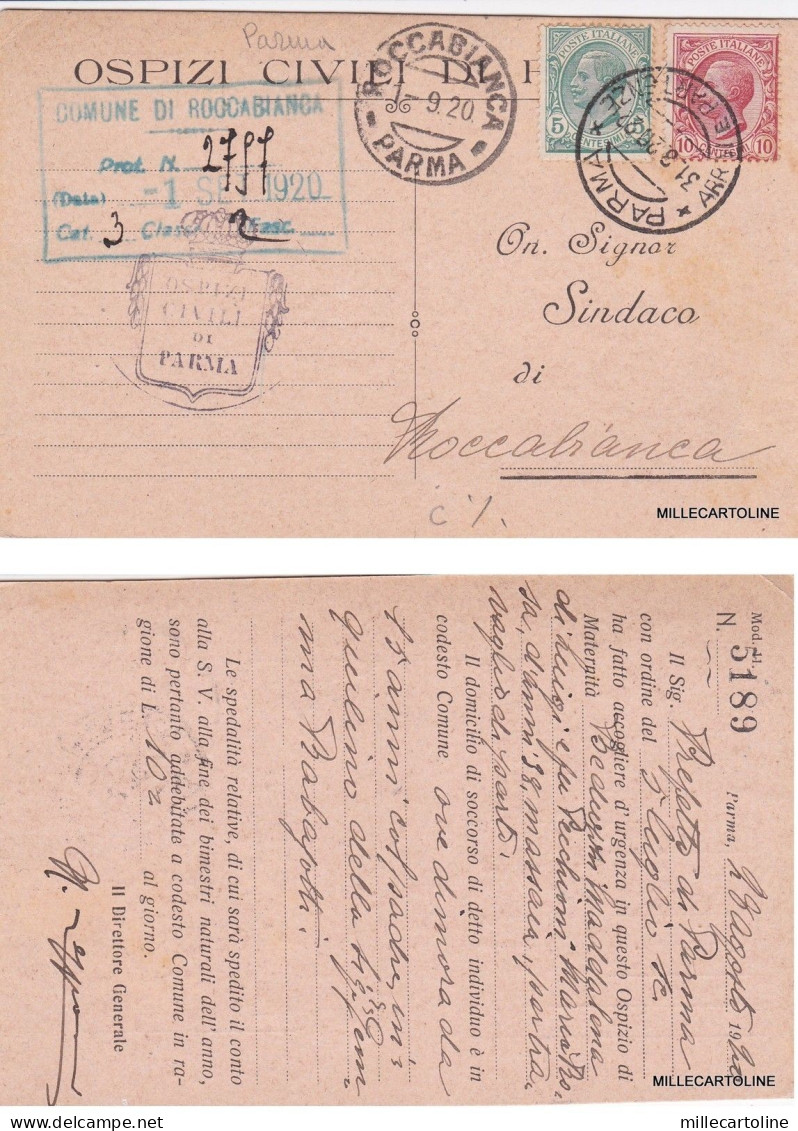 Parma
OSPIZI CIVILI DI P
COMUNE DI ROCCABIANCA
Prot. N. 2797
(Data) -1 SET 1920
Cat. 3 Classe 2 Fasc.
OSPIZI
CIVILI
DI
PARMA
ROCCABIANCA
9.20.
PARMA
POSTE ITALIANE
5 CENTESIMI 5
POSTE ITALIANE
10 CENT. 10
PARMA
ARRIVI E PARTENZE
On. Signor
Sindaco
di
Roccabianca
MILLECARTOLINE
Mod.
N. 5189
Parma, Agosto 1920
Il Sig. Prefetto di Parma
con ordine del
ha fatto accogliere d'urgenza in questo Ospizio di
Maternità Maddalena
di Luigi e fu Maria
sa, d'anni 38, massaia,
Il domicilio di soccorso di detto individuo è in
codesto Comune ove dimora da
anni col padre, in
quilino della
ma
Le spedalità relative, di cui sarà spedito il conto
alla S. V. alla fine dei bimestri naturali dell'anno,
sono pertanto addebitate a codesto Comune in ra-
gione di L. al giorno.
Il Direttore Generale
MILLECARTOLINE
delcampe.net
millecartoline